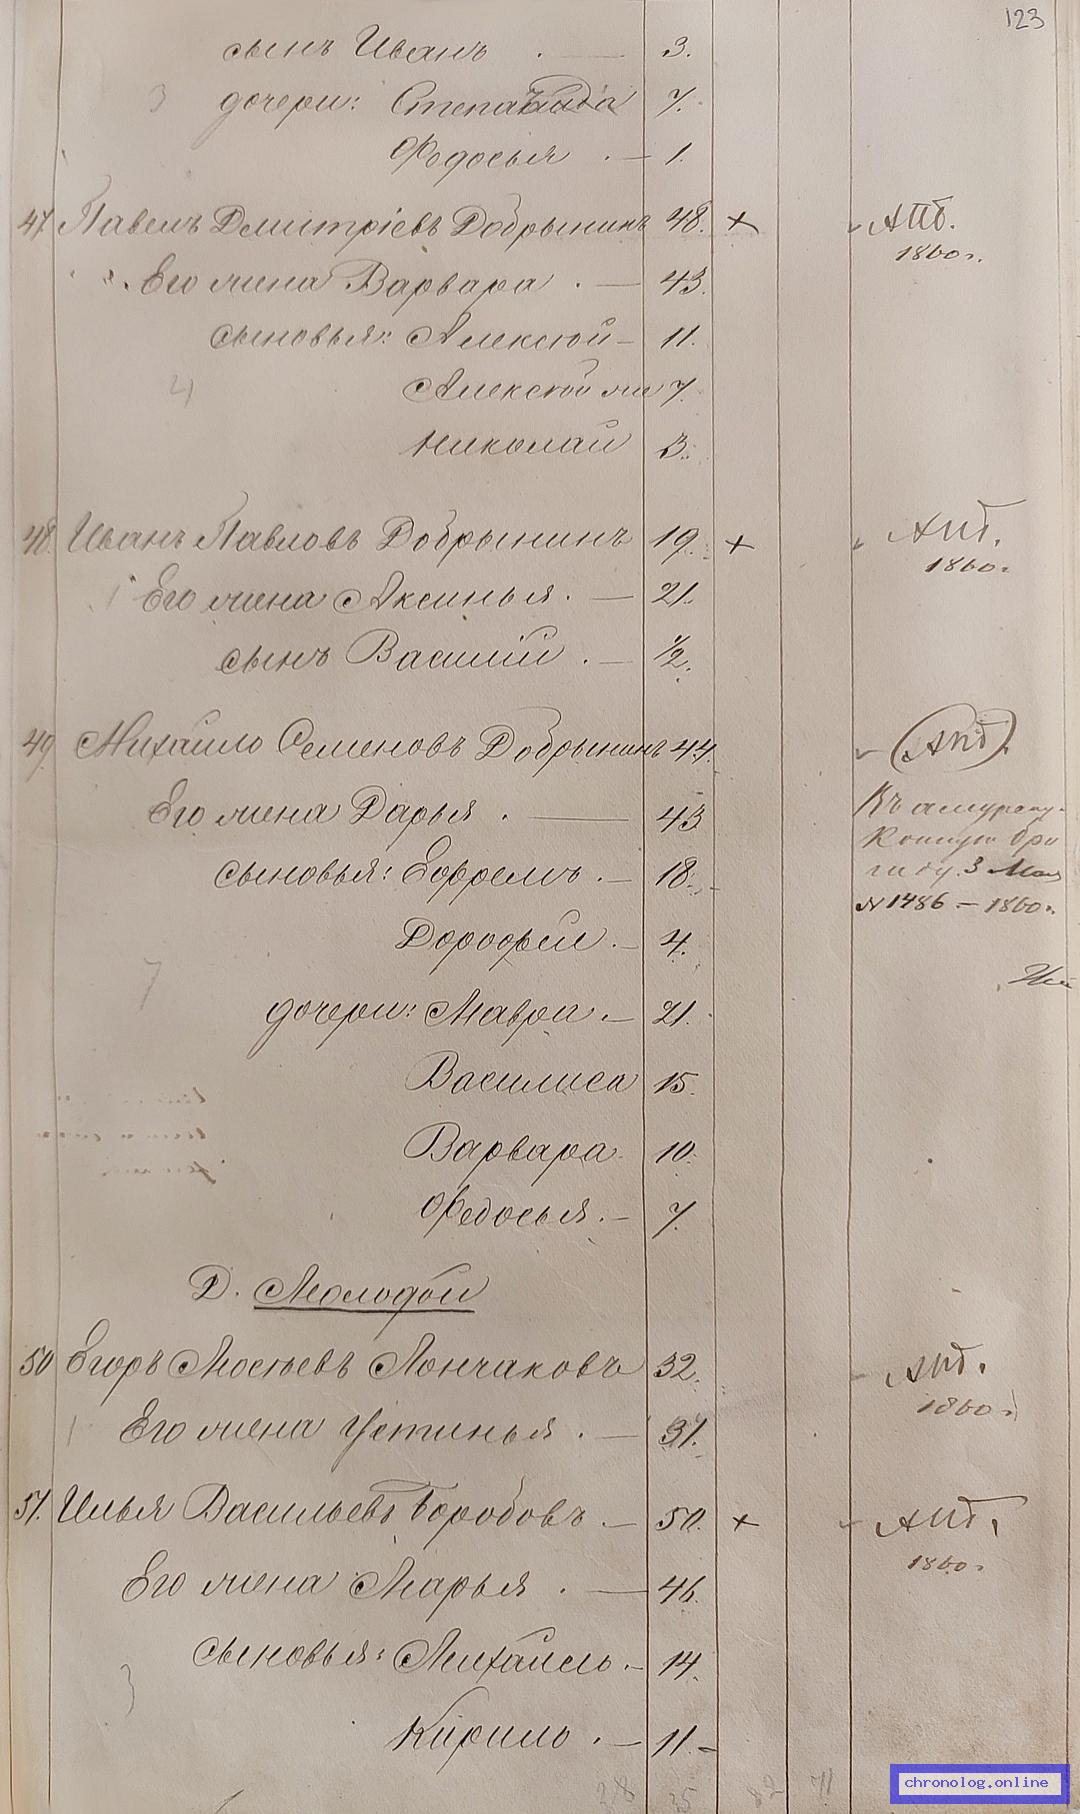 123
сынъ Иванъ . — 3.
3 дочери: Степанида 7.
Федосья . — 1.
47. Павелъ Дмитріевъ Добрынинъ 48. + АПб.
1860 г.
Его жена Варвара . — 43.
сыновья: Алексѣй — 11.
4 Алексѣй же 7.
Николай 3.
48. Иванъ Павловъ Добрынинъ 19. + Апб.
1860 г.
1 Его жена Аксинья . — 21.
сынъ Василій . — ½.
49. Михайло Семеновъ Добрынинъ 44. Апб.
Его жена Дарья . — 43 Къ амурску
сыновья: Ефремъ . — 18. Конную бри
гаду. 3 Мая
№ 1486 — 1860 г.
Дорофей . — 4.
7
дочери: Мавра . — 21.
Василиса 15.
Варвара 10.
Федосья . — 7.
Д. Молодой
50 Егоръ Мосѣевъ Лончаковъ 32. Апб.
1860 г.
1 Его жена Устинья . — 31.
51. Илья Васильевъ Горбовъ . — 50. + Апб.
1860 г.
Его жена Марья . — 46.
3 сыновья: Михайло . — 14.
Кирило . — 11. —
28 35 82 71
chronolog.online